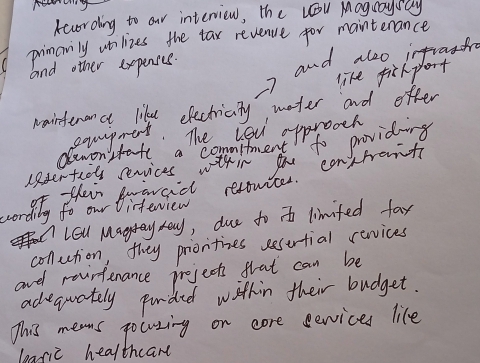 According
According to our interview, the LGU Magsaysay
primarily utilizes the tax revenue for maintenance
and other expenses.
and also infrastru
like fishport
maintenance like electricity, water and other
equipment. The LGU approach
demonstrate a commitment to providing
essentials services within the constraints
of their financial resources.
ccording to our interview
LGU Magsaysay, due to its limited tax
collection, they prioritizes essential services
and maintenance projects that can be
adequately funded within their budget.
This means focusing on core services like
basic healthcare